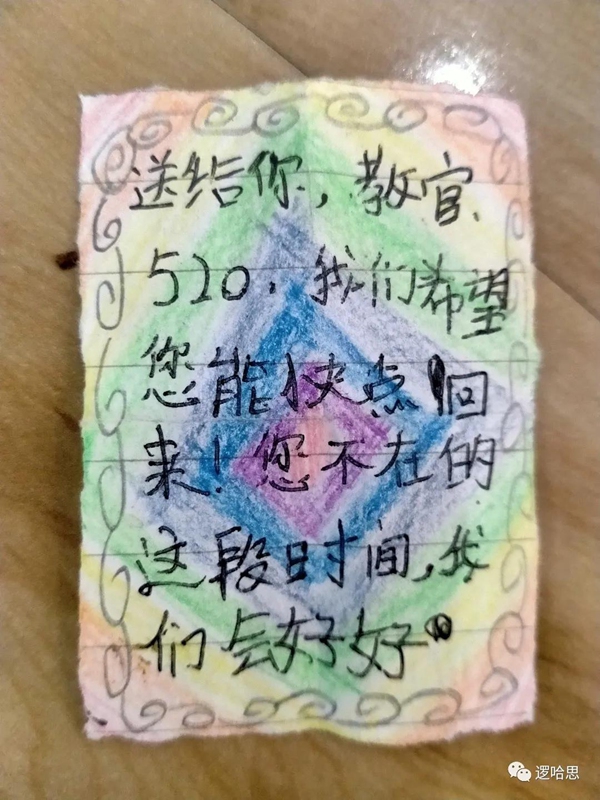 送给你，教官、
520，我们希望
您能快点回
来！您不在的
这段时间，我
们会好好
逻哈思